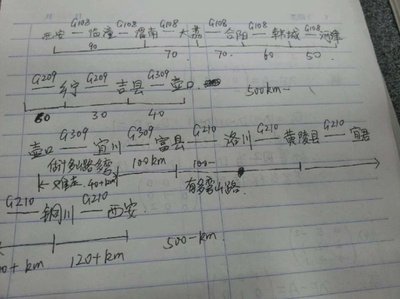 西安 G108 临潼 G108 渭南 G108 大荔 G108 合阳 G108 韩城 G108 河津
90 70 70 60 50
G209 乡宁 G209 吉县 G309 壶口
80 30 40 500km-
壶口 G309 宜川 G309 富县 G210 洛川 G210 黄陵县 G210 宜君
100km 100-
40+km 有多弯山路
G210 铜川 G210 西安
km 120+km 500-km